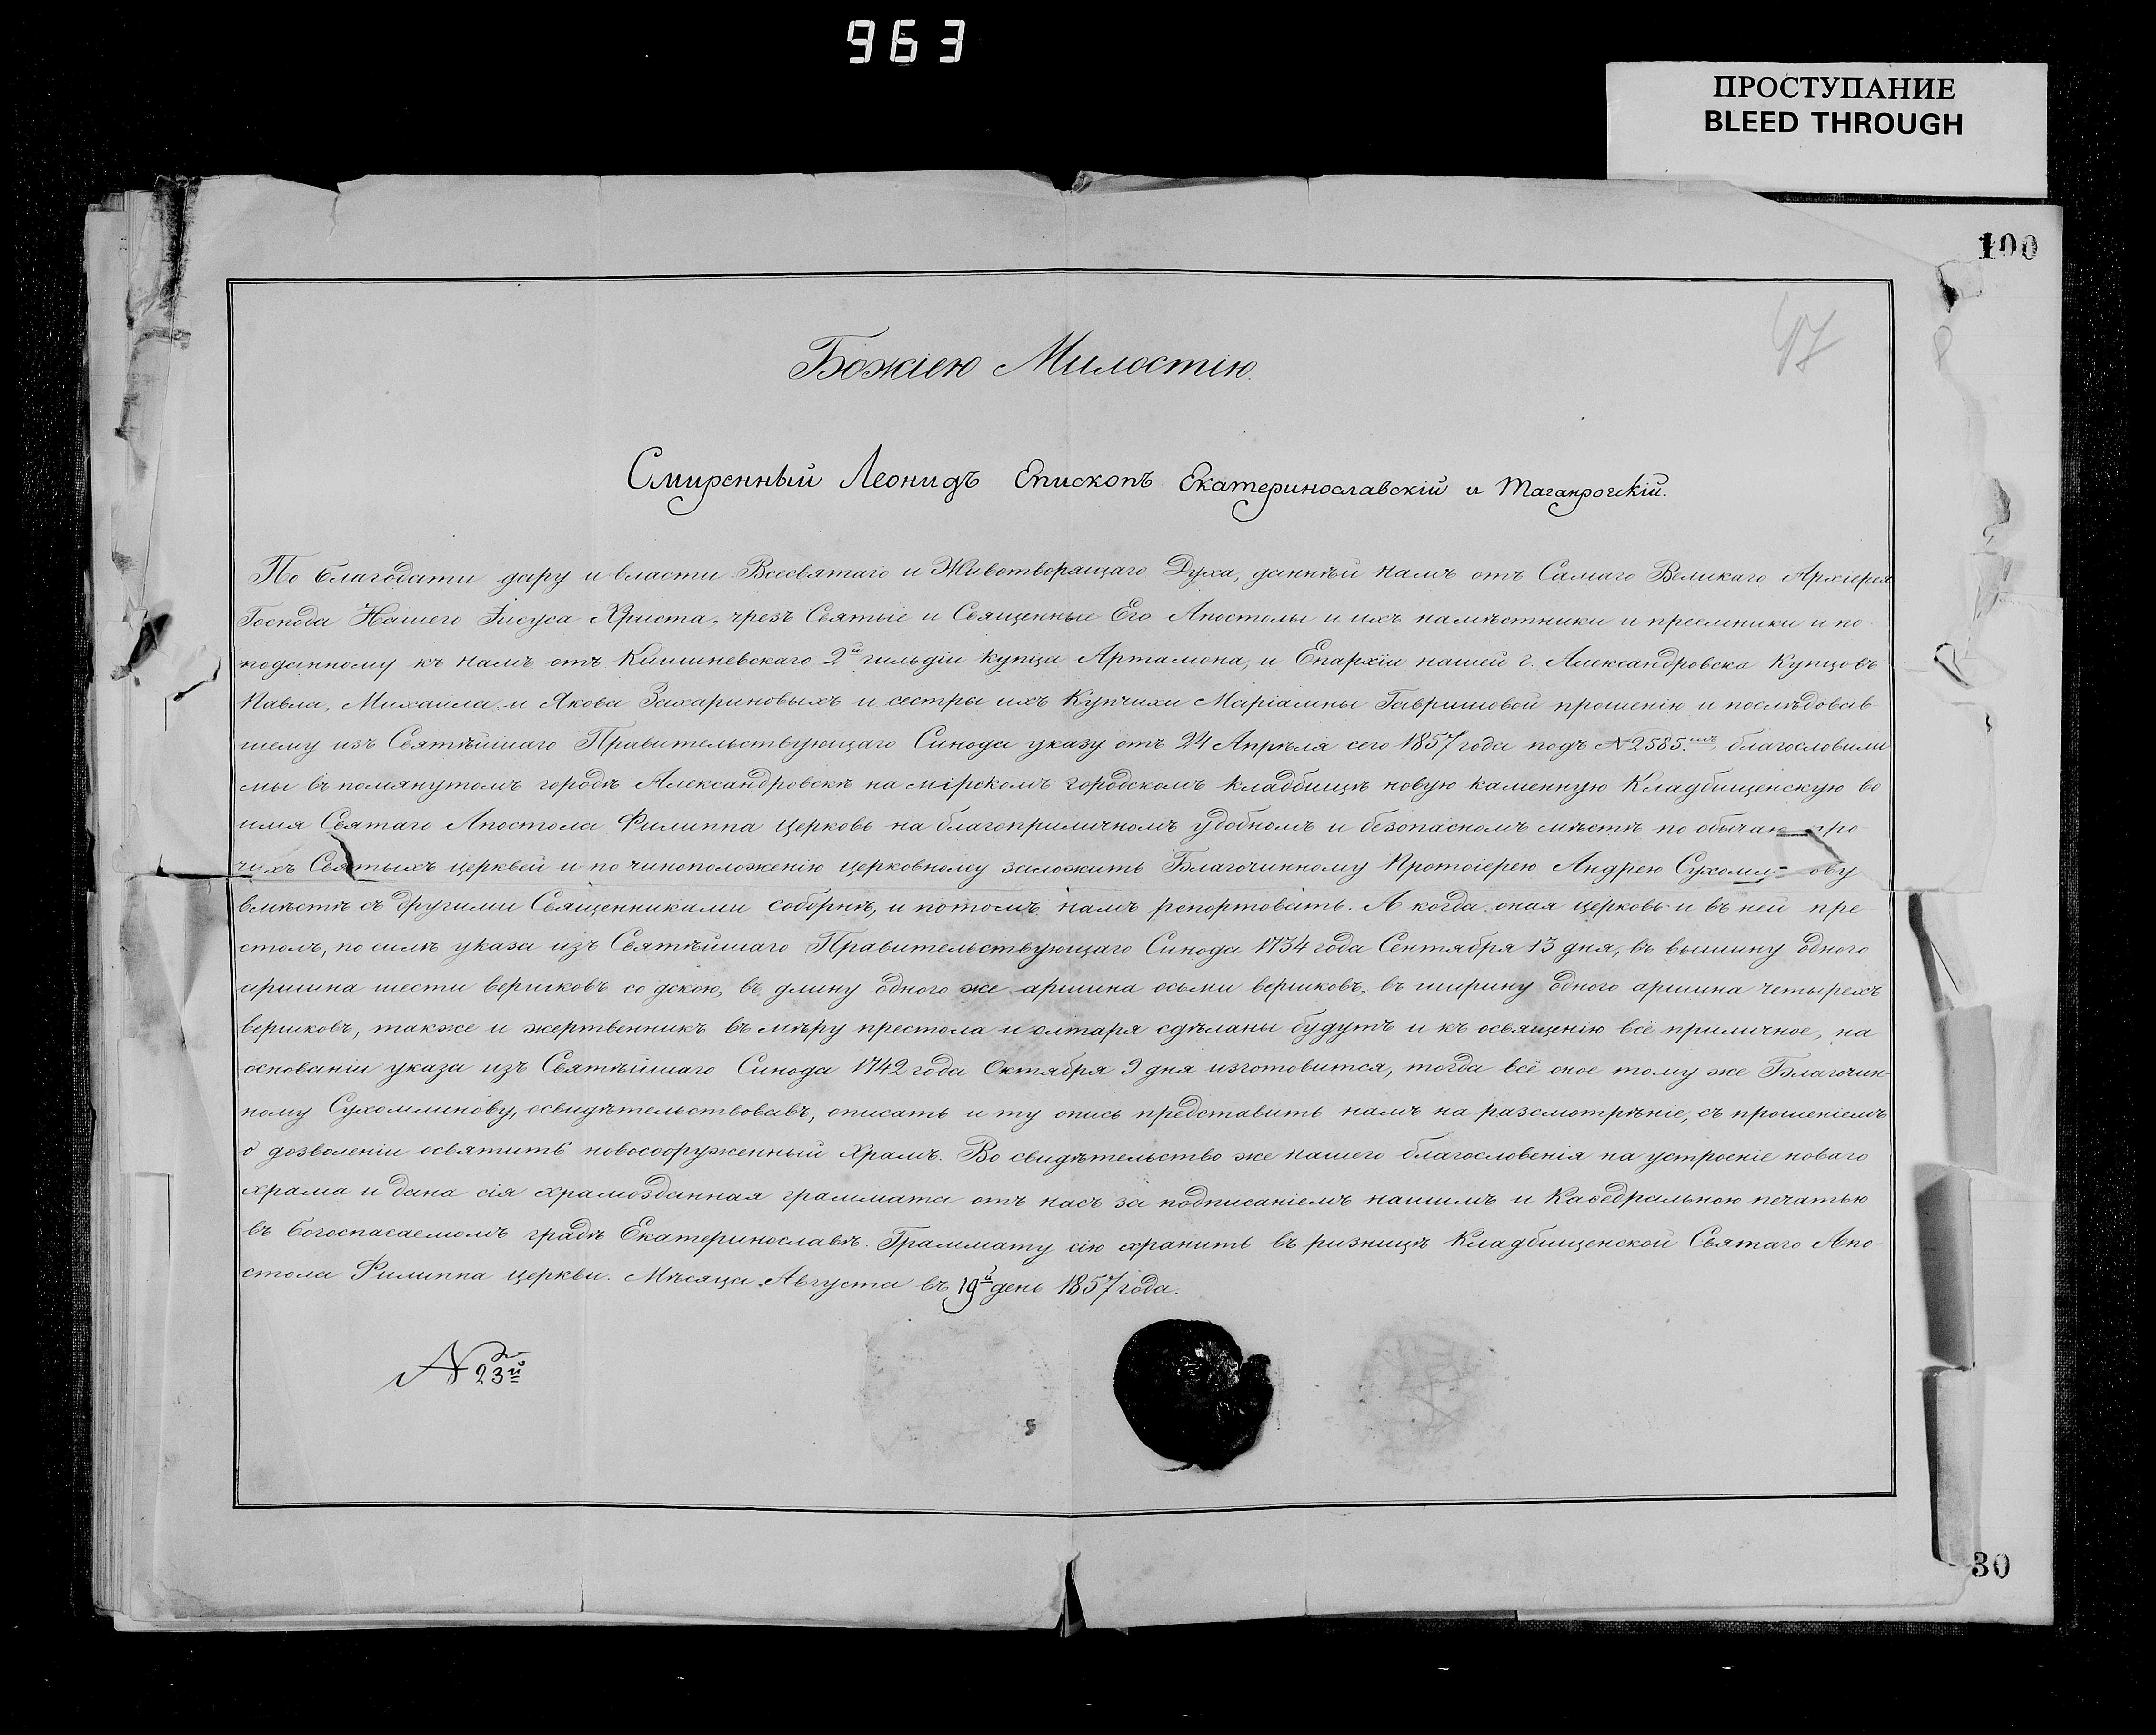 963
ПРОСТУПАНИЕ
BLEED THROUGH
100
47
Божіею Милостію.
Смиренный Леонидъ Епископъ Екатеринославскій и Таганрогскій.
По благодати дару и власти Всесвятаго и Животворящаго Духа, данный намъ отъ Самаго Великаго Архіерея
Господа Нашего Іисуса Христа, чрезъ Святые и Священные Его Апостолы и ихъ намѣстники и преемники и по
поданному къ намъ отъ Кишиневскаго 2й гильдіи купца Артамона, и Епархіи нашей г. Александровска Купцовъ
Павла, Михаила и Якова Захариновыхъ и сестры ихъ Купчихи Маріамны Гавришовой прошенію и послѣдовав
шему изъ Святѣйшаго Правительствующаго Синода указу отъ 24 Апрѣля сего 1857 года подъ №2585.мъ, благословили
мы въ помянутомъ городѣ Александровскѣ на мірскомъ городскомъ кладбищѣ новую каменную Кладбищенскую во
имя Святаго Апостола Филиппа Церковь на благоприличномъ удобномъ и безопасномъ мѣстѣ по обычаю про
чихъ Святыхъ церквей и по чиноположенію церковному заложить Благочинному Протоіерею Андрею Сухомл-ову
вмѣстѣ съ другими Священниками соборнѣ, и потомъ намъ репортовать. А когда оная церковь и въ ней пре
столъ, по силѣ указа изъ Святѣйшаго Правительствующаго Синода 1734 года Сентября 13 дня, въ вышину одного
аршина шести вершковъ со дскою, въ длину одного же аршина осьми вершковъ, въ ширину одного аршина четырехъ
вершковъ, также и жертвенникъ въ мѣру престола и олтаря сдѣланы будутъ и къ освященію всё приличное, на
основаніи указа изъ Святѣйшаго Синода 1742 года Октября 9 дня изготовится, тогда всё оное тому же Благочин
ному Сухомлинову, освидѣтельствовавъ, описать и ту опись представить намъ на разсмотрѣніе, съ прошеніемъ
о дозволеніи освятить новосооруженный Храмъ. Во свидѣтельство же нашего благословенія на устроеніе новаго
храма и дана сія храмозданная граммата отъ насъ за подписаніемъ нашимъ и Каѳедральною печатью
въ богоспасаемомъ градѣ Екатеринославѣ. Граммату сію хранить въ ризницѣ Кладбищенской Святаго Апо-
стола Филиппа церкви. Мѣсяца Августа въ 19й день 1857 года.
№ 23й
30